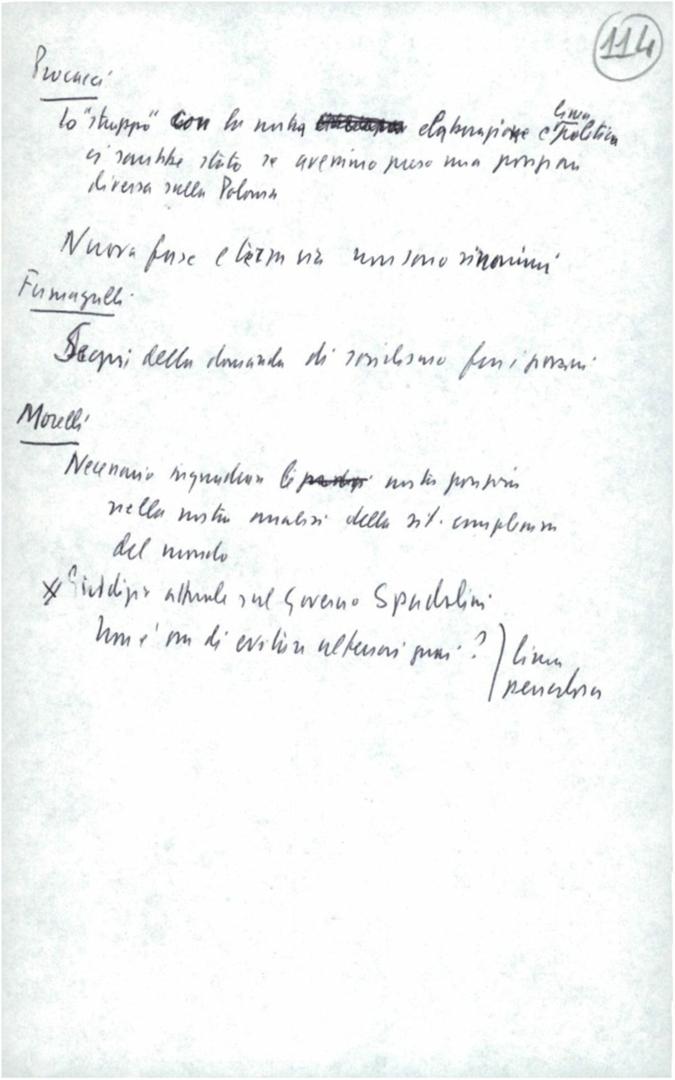 114
Procacci
Lo "strappo" con la nostra elaborazione e linea politica
ci sarebbe stato se avessimo preso una posizione
diversa sulla Polonia
Nuova fase e terza via non sono sinonimi
Fumagalli
della domanda di socialismo
Morelli
Necessario inquadrare la nostra posizione
nella nostra analisi della sit. complessiva
del mondo
Giudizio attuale sul Governo Spadolini
Non è ora di evitare ulteriori guai? linea